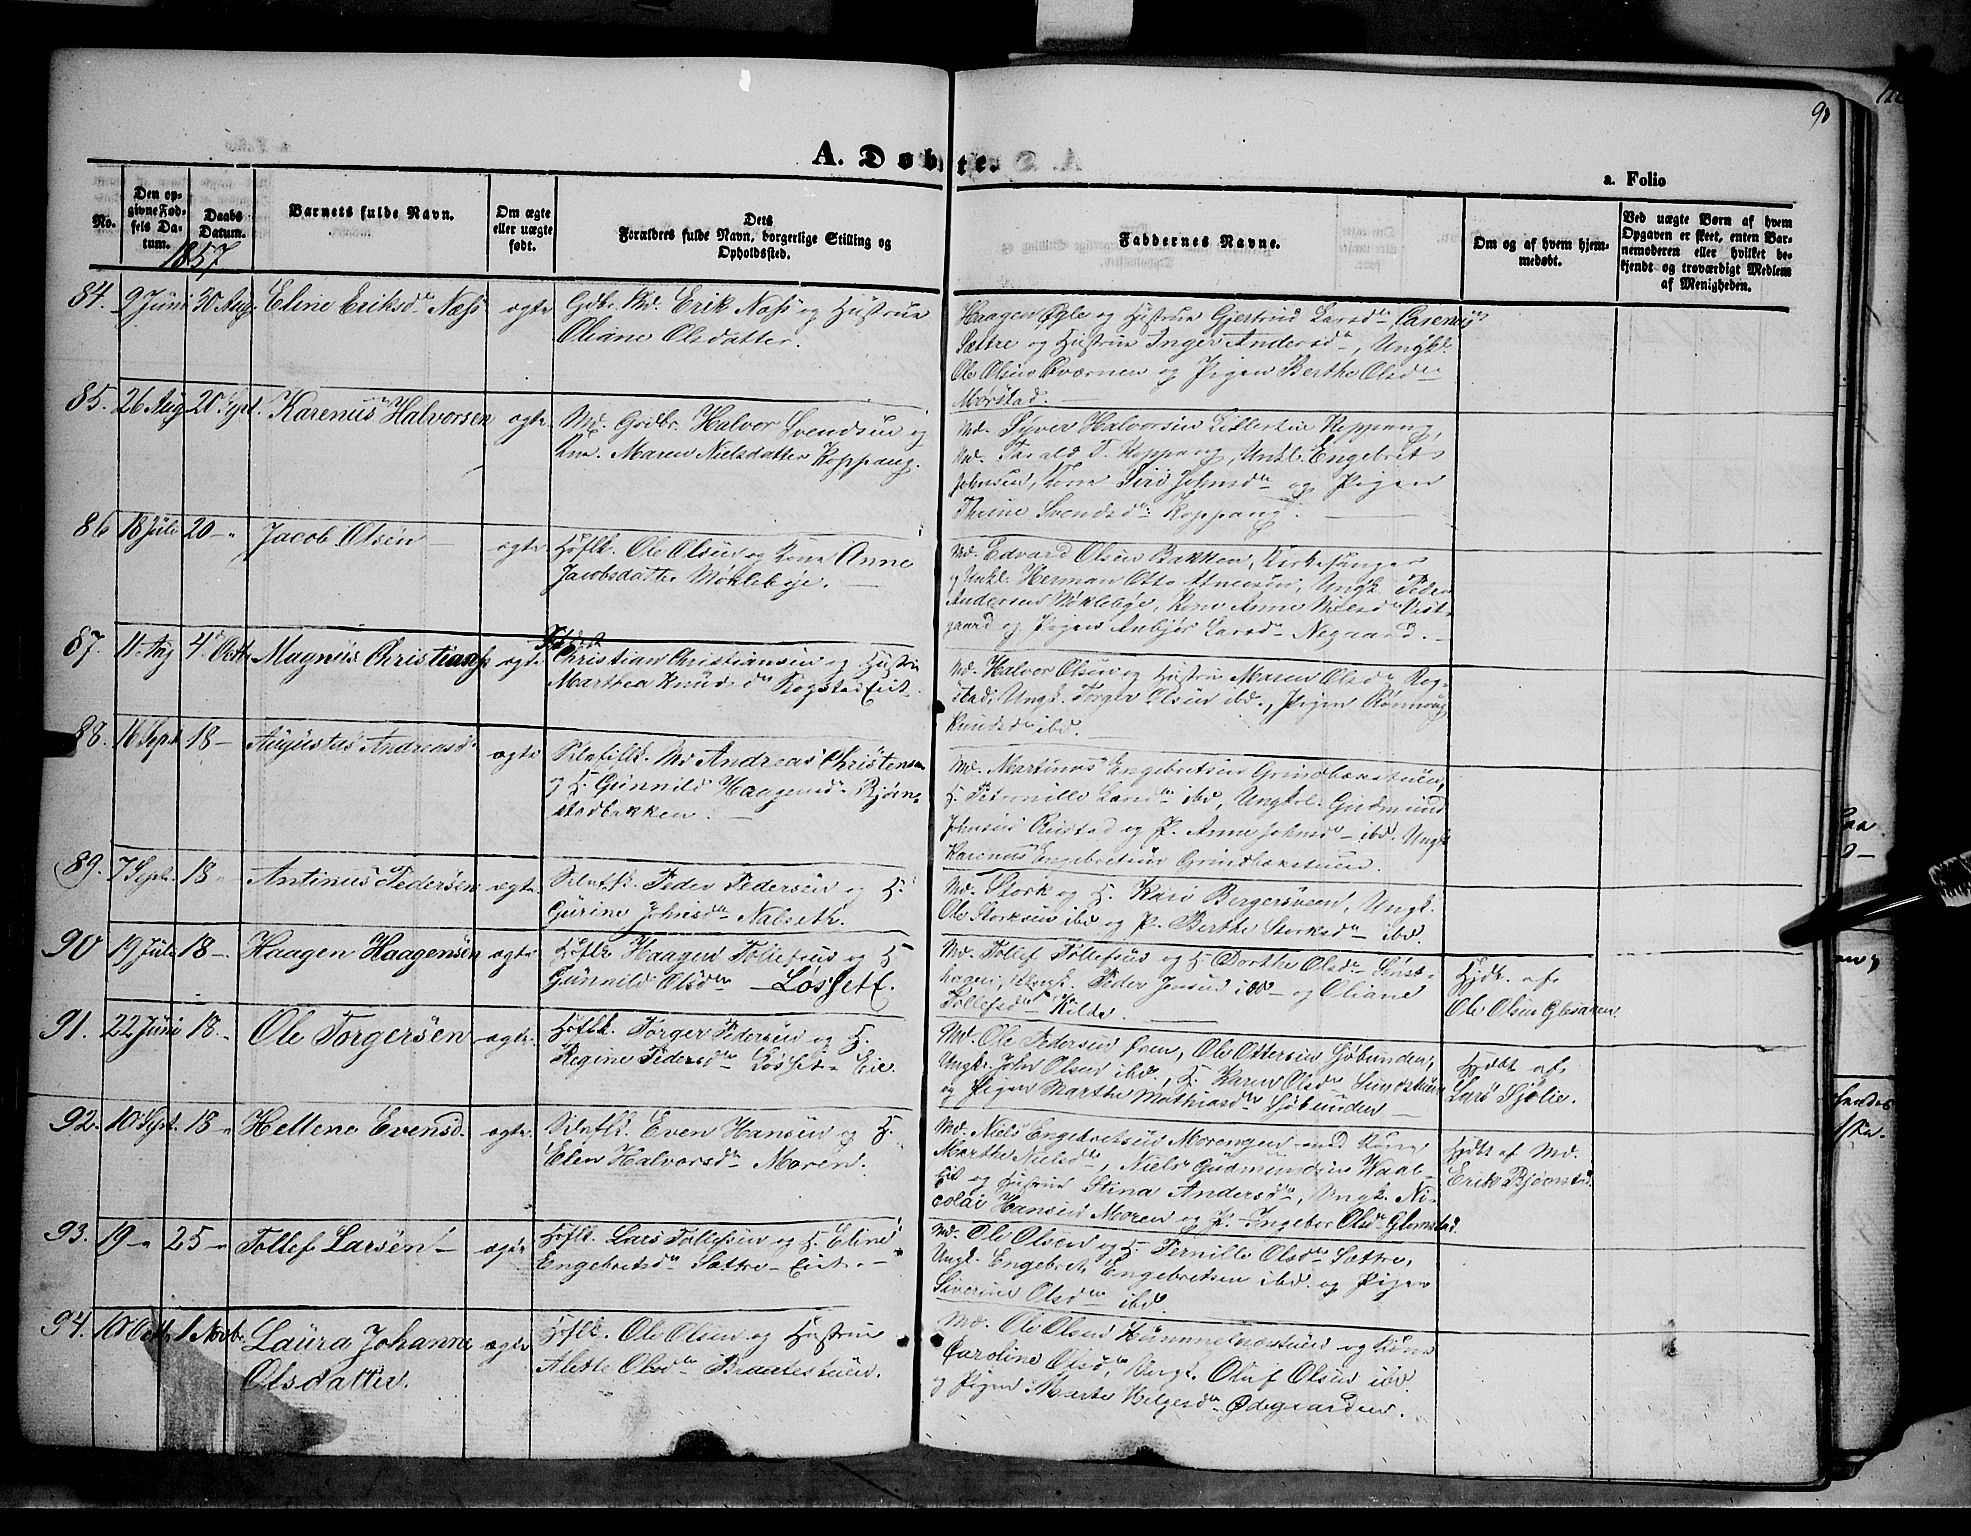 98
A. Døbte.
a. Folio
No.
Den opgivne Fødsels Datum.
Daabs Datum.
Barnets fulde Navn.
Om ægte eller uægte født.
Dets Forældres fulde Navn, borgerlige Stilling og Opholdssted.
Faddernes Navne.
Om og af hvem hjemmedøbt.
Ved uægte Børn af hvem Opgaven er skeet, enten Barnemoderen eller hvilket bekjendt og troværdigt Medlem af Menigheden.
1857
84. 9 Juni 30 Aug. Eline Eriksd. Næss ægte Gdbr. Md. Erik Næss og Hustrue
Oliane Olsdatter.
Haagen Øgle og Hustrue Gjertrud Larsd.
Sættre og Hustrue Inger Andersd., Ungk.
Ole Olsen Qværnen og Pigen Berthe Olsd.
Morstad.
85. 26 Aug 20 Sept. Karenus Halvorsen ægte Md. Grdbr. Halvor Svendsen og
Kne. Maren Nielsdatter Koppang.
Md. Syver Halvorsen Koppang,
Md. Tarald T. Koppang, Unkl. Engebret
Johnsen, Kone Siri Johnsd. og Pigen
Thrine Svendsd. Koppang.
86 18 Juli 20 - " Jacob Olsen ægte Hsflk. Ole Olsen og Kone Anne
Jacobsdatter Møklebye.
Md. Edvard Olsen Bakken, Kirkesanger
og Unkl. Herman Otto Ungk. Peder
Andersen Møklebye, Kone Anne Nilsd. Vest-
gaard og Pigen Anbjør Larsd. Negaard.
87. 11 Aug 4 Octb. Magnus Christians ægte Christian Christiansen og Hustrue
Marthea Knudsd. Rogstad Eiet.
Md. Halvor Olsen og Hustrue Maren Olsd. Rog-
stad, Ungk. Torger Olsen ibd., Pigen Rønnoug
Knudsd. ibd.
88. 16 Sept. 18 - Augusta Andreasd. ægte Md. Andreas Christensen
og H. Gunnild Haagensd. Bjørn-
stadbakken.
Md. Martinus Engebretsen Grindbækstuen,
H. Petronille Larsd. ibd, Ungkrl. Gudmund
Johnsen Rustad og P. Anne Johnsd. ibd. Ungk.
Karenus Engebretsen Grindbækstuen.
89. 7 Sept. 18 " Antinus Pedersen ægte Peder Pedersen og H.
Gurine Johnsd. Nabseth.
Md. Stork og H. Kari Bergersveen, Ungk.
Ole Storksen ibd og P. Berthe Storksd. ibd.
90 19 Juli 18 - Haagen Haagensen ægte Hsflk. Haagen Tollefsen og H.
Gunnild Olsd. Løssett.
Md. Tollef Tollefsen og H. Dorthe Olsd.
hagen, Ungk. Peder Jensen ibd og Oliane
Tollefsd. Kilde.
Hjdt. af
Ole Olsen Glesaaen
91. 22 Juni 18. Ole Torgersen ægte Hsflk. Torger Pedersen og H.
Regine Pedersd. Løsset Eie.
Md. Ole Pedersen Øren, Ole Ottersen Sjøbunden,
Ungk. John Olsen ibd., H. Karen Olsd. Sundstuen
og Pigen Marthe Mathiasd. Sjøbunden
Hjdbt af
Lars Sjølie.
92. 10 Sept. 18 - " Hellene Evensd. ægte Even Hansen og H.
Elen Halvorsd. Moren.
Md. Niels Engebretsen Morengen med Kone
Marthe Nielsd., Niels Gudmundsen Waal-
eit og Hustrue Stina Andersd., Ungk. Ni-
colai Hansen Moren og P. Ingebor Olsd. Glomstad.
Hjdbt af Md.
Erik Bjørnstad.
93. 19 - " 25 - " Tollef Larsen ægte Hsflk. Lars Tollefsen og H. Eline
Engebretsd. Sættre Eiet.
Md. Ole Olsen og H. Pernille Olsd. Sættre,
Ungk. Engebret Engebretsen ibd. og Pigen
Siverine Olsd. ibd.
94. 10 Octb. 1 Novb. Laura Johanne
Olsdatter. ægte Hsflk. Ole Olsen og Hustrue
Alette Olsd. Braatestuen.
Md. Ole Olsen Hummelnæstuen og Kone
Caroline Olsd., Ungk. Oluf Olsen ibd.
og Pigen Marte Helgesd. Ødegaarden.